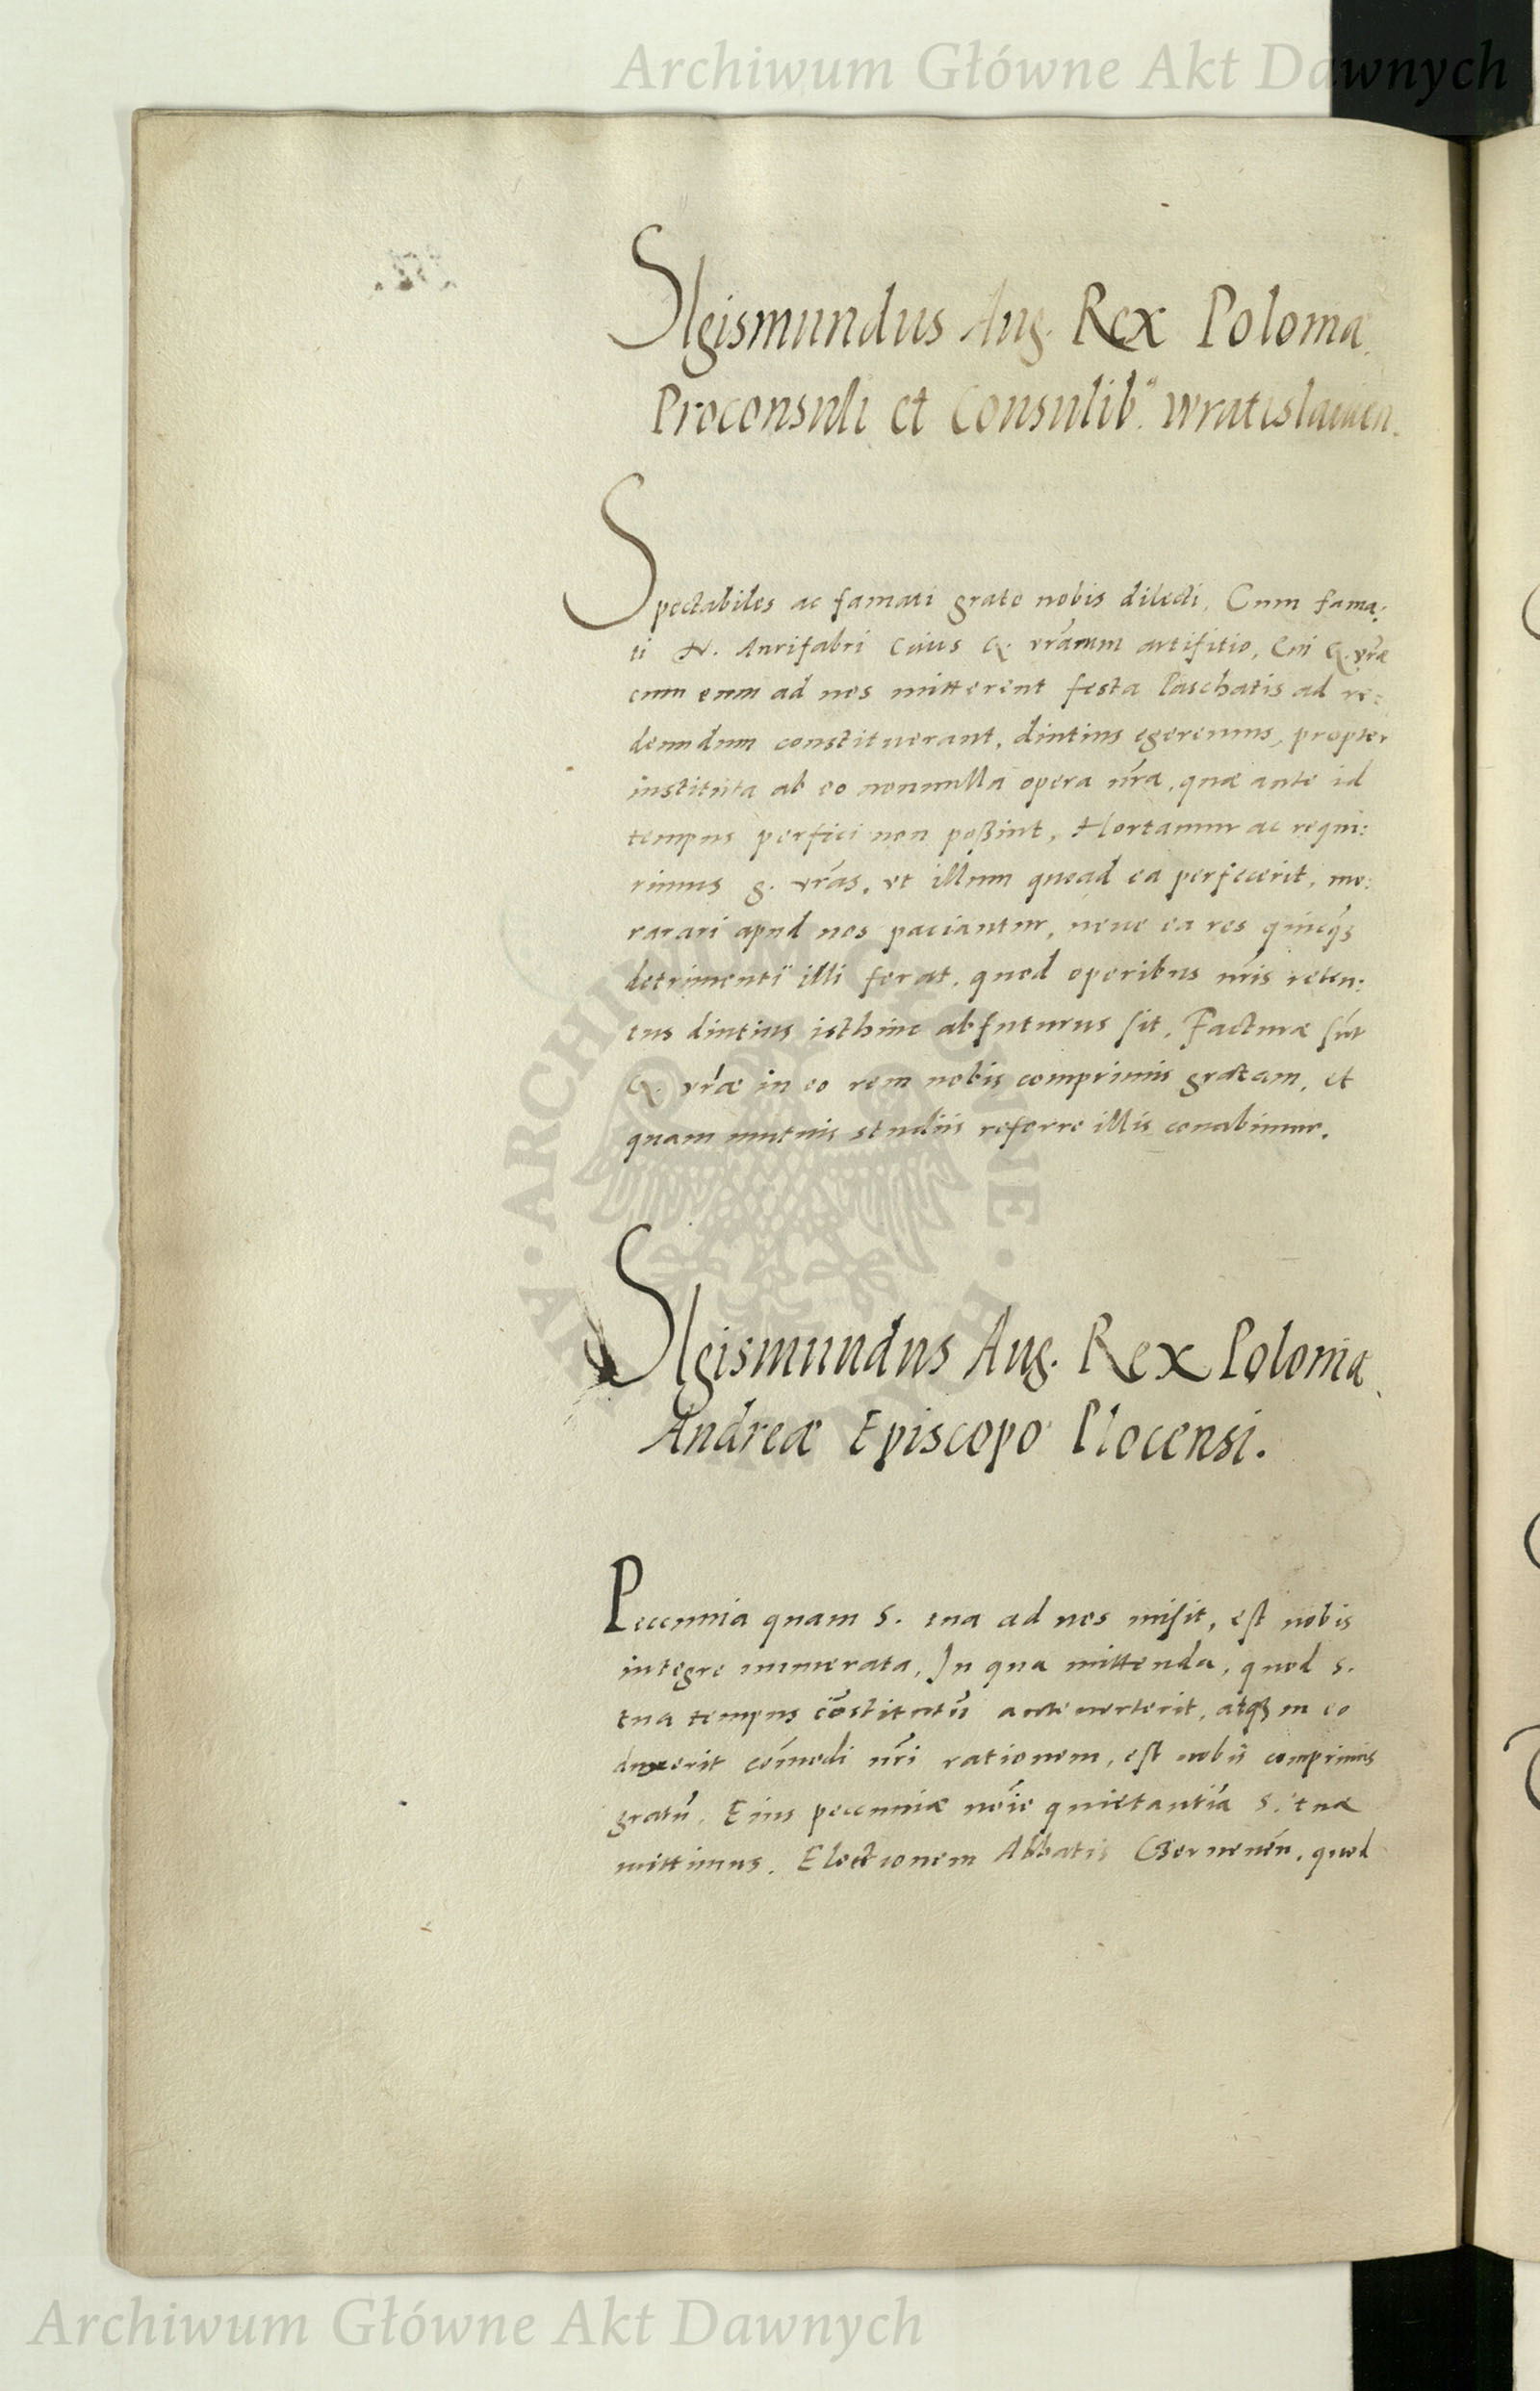 Archiwum Główne Akt Dawnych
SIgismundus Aug. Rex Poloniæ
Proconsuli et Consulib9. Wratislauien.
Spectabiles ac famati grate nobis dilecti, Cum fama:
ti N. Aurifabri Ciuis G. vrarum artifitio, Cui G. vræ
cum eum ad nos mitterent festa Paschatis ad re:
deundum constituerant, diutius egeremus, propter
instituta ab eo nonnulla opera nra, quæ ante id
tempus perfici non poßint, Hortamur ac requi:
rimus g. vras, vt illum quoad ea perfecerit, mo:
rarari apud nos paciantur, neue ea res quicq3
detrimenti illi ferat, quod operibus nris reten:
tus diutius isthinc abfuturus sit. Facturæ sunt
G. vræ in eo rem nobis comprimis gratam, et
quam mutuis studiis referre illis conabimur.
SIgismundus Aug. Rex Poloniæ
Andreæ Episcopo Plocensi.
Pecunia quam S. tua ad nos misit, est nobis
integre numerata, In qua mittenda, quod S.
tua tempus cōstitutū anteuerterit, atq3 in eo
duxerit cōmodi nri rationem, est nobis comprimis
gratū. Eius pecuniæ noīe quietantiā S. tuæ
mittimus. Electionem Abbatis Czeruenēn, quod
ARCHIWUM GŁÓWNE
Archiwum Główne Akt Dawnych